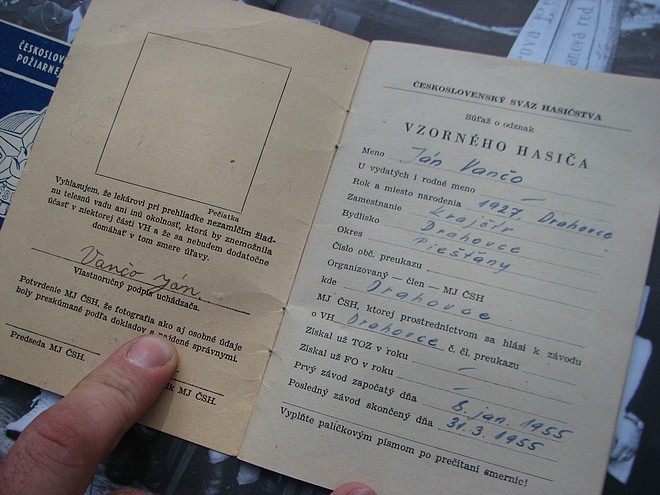 ČESKOSLOV
POŽIARNE
Pečiatka
Vyhlasujem, že lekárovi pri prehliadke nezamlčím žiad-
nu telesnú vadu ani inú okolnosť, ktorá by znemožnila
účasť v niektorej časti VH a že sa nebudem dodatočne
domáhať v tom smere úľavy.
Vančo Ján.
Vlastnoručný podpis uchádzača.
Potvrdenie MJ ČSH, že fotografia ako aj osobné údaje
boly preskúmané podľa dokladov a nájdené správnymi.
Predseda MJ ČSH.
ik MJ ČSH.
ČESKOSLOVENSKÝ SVÄZ HASIČSTVA
Súťaž o odznak
VZORNÉHO HASIČA
Meno Ján Vančo
U vydatých i rodné meno —
Rok a miesto narodenia 1927, Drahovce
Zamestnanie krajčír
Bydlisko Drahovce
Okres Piešťany
Číslo obč. preukazu
Organizovaný — člen — MJ ČSH
kde Drahovce
MJ ČSH, ktorej prostredníctvom sa hlási k závodu
o VH Drahovce č. čl. preukazu
Získal už TOZ v roku —
Získal už FO v roku —
Prvý závod započatý dňa 8. jan. 1955
Posledný závod skončený dňa 31. 3. 1955
Vyplňte paličkovým písmom po prečítaní smerníc!